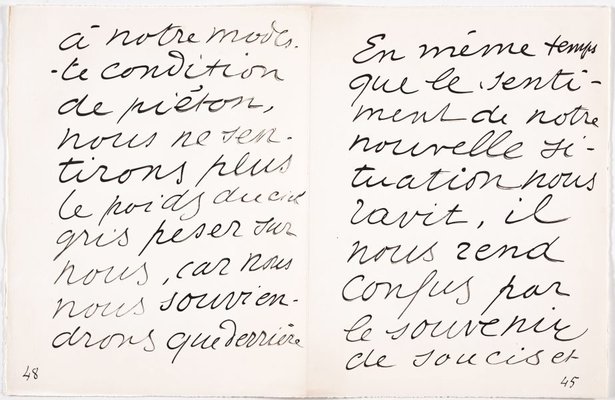 à notre modes-
-te condition
de piéton,
nous ne sen-
tirons plus
le poids du ciel
gris peser sur
nous, car nous
nous souvien-
drons que derrière
48
En même temps
que le senti-
ment de notre
nouvelle si-
tuation nous
ravit, il
nous rend
confus par
le souvenir
de soucis et
45